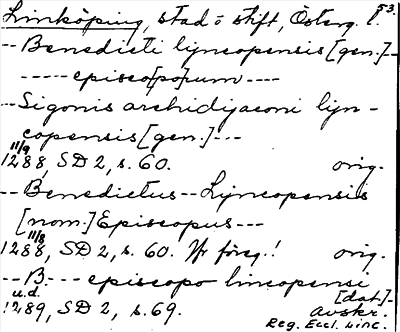 Linköping, stad o stift, Österg. l. 53.
--Benedicti lijncopensis [gen.]--
-----episco[po]rum----
--Sigonis archidijaconi lijn-
copensis [gen.]---
11/9
1288, SD 2, s. 60. orig.
--Benedictus--Lijncopensis
[nom.] Episcopus---
11/9
1288, SD 2, s. 60. Jfr föreg.! orig.
--B.--- episcopo lincopensi
[dat.]-
u.d.
1289, SD 2, s. 69. avskr.
Reg. Eccl. Linc.